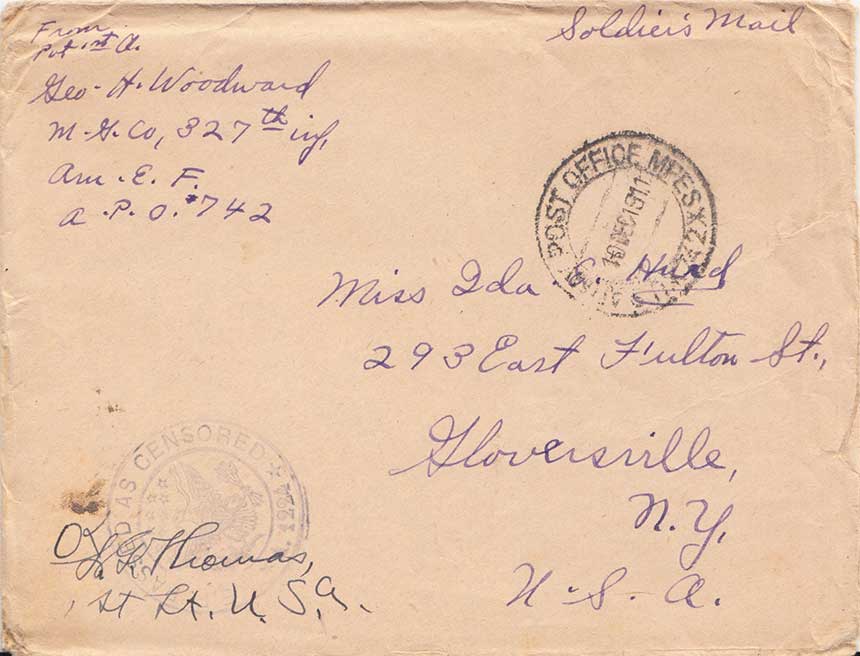 From
Pvt 1st Cl.
Geo. H. Woodward
M. G. Co, 327th inf,
Am. E. F.
A. P. O. #742
Soldier's Mail
POST OFFICE MPES X 742
10 DEC 1911
Miss Ida C. Hurd
293 East Fulton St.,
Gloversville,
N. Y,
U. S. A.
AS CENSORED
OK
Thomas,
1st Lt. U. S. A.